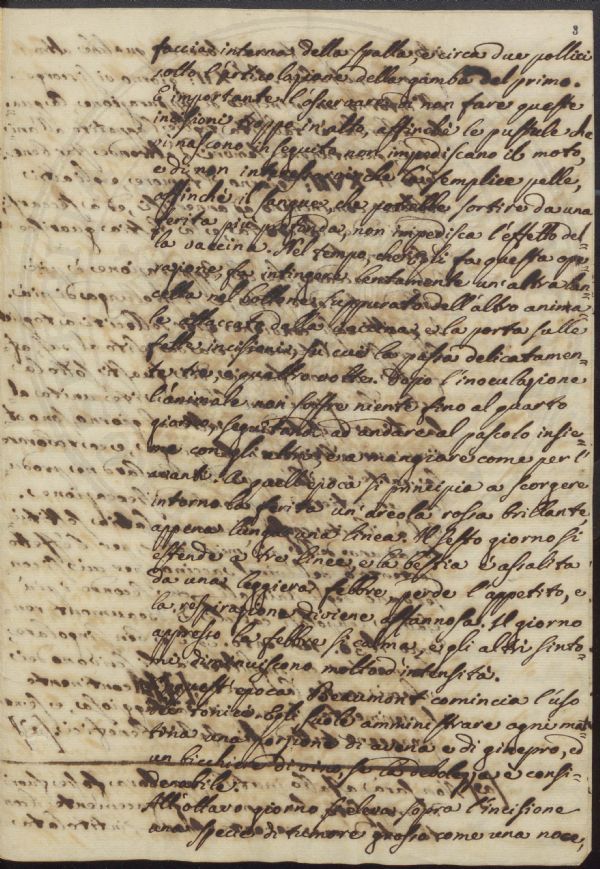 3
faccia interna della spalla, e circa due pollici
sotto l'articolazione della gamba del primo.
È importante l'osservare di non fare queste
incisioni troppo in alto, affinchè le pustule che
nascono in seguito non impediscano il moto,
e di non intaccare che la semplice pelle,
affinchè il sangue, che potrebbe sortire da una
ferita più profonda, non impedisca l'effetto del-
la vaccina. Nel tempo, che si fa questa ope-
razione, fa intingere lentamente un'altra lan-
cetta nel bottone suppurato dell'altro anima-
le attaccato dalla vaccina, e la porta sulle
fatte incisioni, su cui la passa delicatamen-
te tre, o quattro volte. Dopo l'inoculazione
l'animale non soffre niente fino al quarto
giorno, seguitando ad andare al pascolo insie-
me con gli altri, e a mangiare come per l'
avanti. A quell'epoca si principia a scorgere
intorno la ferita un'areola rossa brillante
appena lunga una linea. Il sesto giorno si
estende a tre linee, e la bestia è assalita
da una leggiera febbre, perde l'appetito, e
la respirazione diviene affannosa. Il giorno
appresso la febbre si calma, e gli altri sinto-
mi diminuiscono molto d'intensità.
A quest'epoca Beaumont comincia l'uso
dei tonici. Egli suole amministrare ogni mat-
tina una porzione di avena e di ginepro, ed
un bicchiere di vino, se la debolezza è consi-
derabile.
All'ottavo giorno si eleva sopra l'incisione
una specie di tumore grosso come una noce,